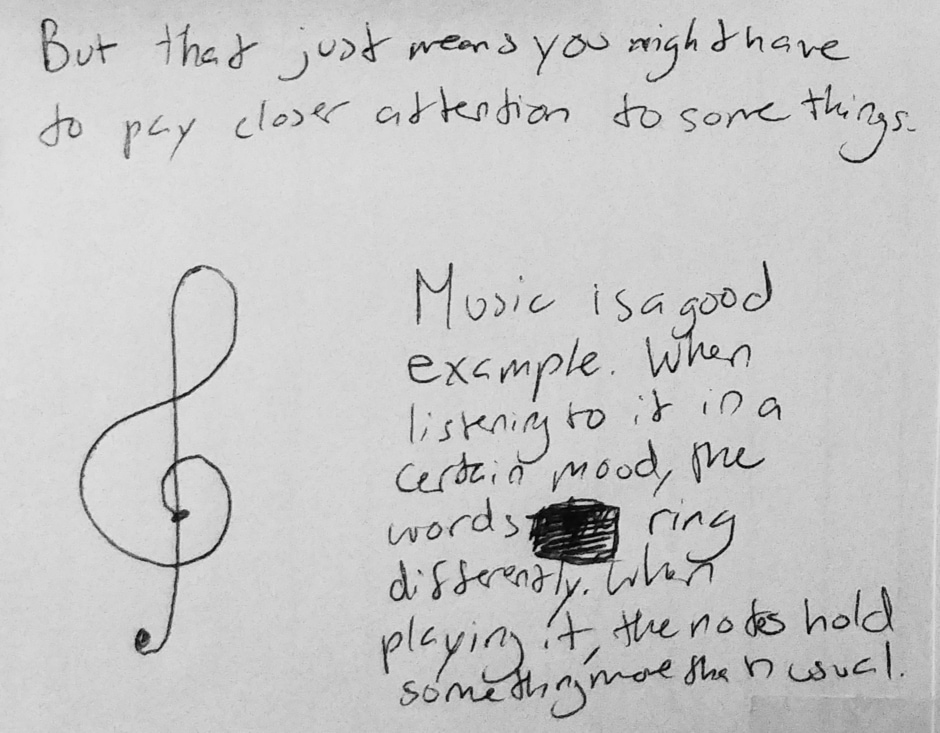 But that just means you might have
to pay closer attention to some things.
Music is a good
example. When
listening to it in a
certain mood, the
words ring
differently. When
playing it, the notes hold
something more than usual.